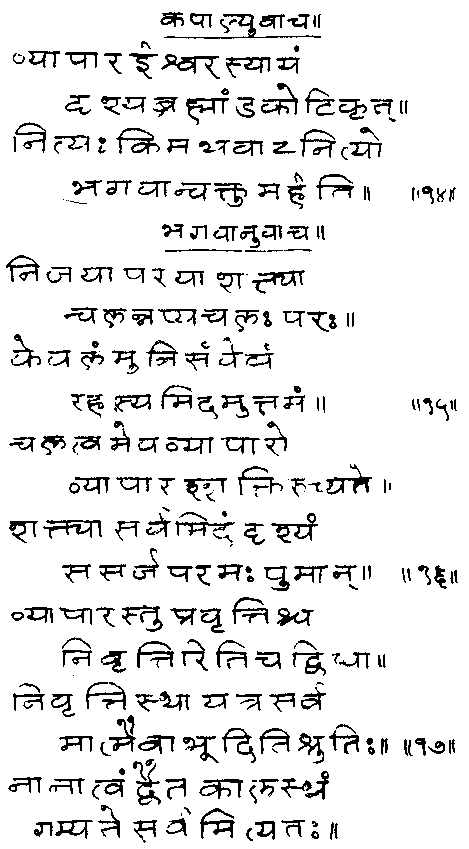 कपाल्युवाच॥
व्यापार ईश्वरस्यायं
दृश्यब्रह्मांडकोटिकृत्॥
नित्यः किमथवाऽनित्यो
भगवान्वक्तुमर्हति॥ ॥१४॥
भगवानुवाच॥
निजया परया शक्त्या
चलन्नप्यचलः परः॥
केवलं मुनिसंवेद्यं
रहस्यमिदमुत्तमं॥ ॥१५॥
चलत्वमेव व्यापारो
व्यापारश्शक्तिरुच्यते॥
शक्त्या सर्वमिदं दृश्यं
ससर्ज परमः पुमान्॥ ॥१६॥
व्यापारस्तु प्रवृत्तिश्च
निवृत्तिरिति च द्विधा॥
निवृत्तिस्था यत्र सर्व
मात्मैवाभूदिति श्रुतिः॥ ॥१७॥
नानात्वं द्वैतकालस्थं
गम्यते सर्वमित्यतः॥